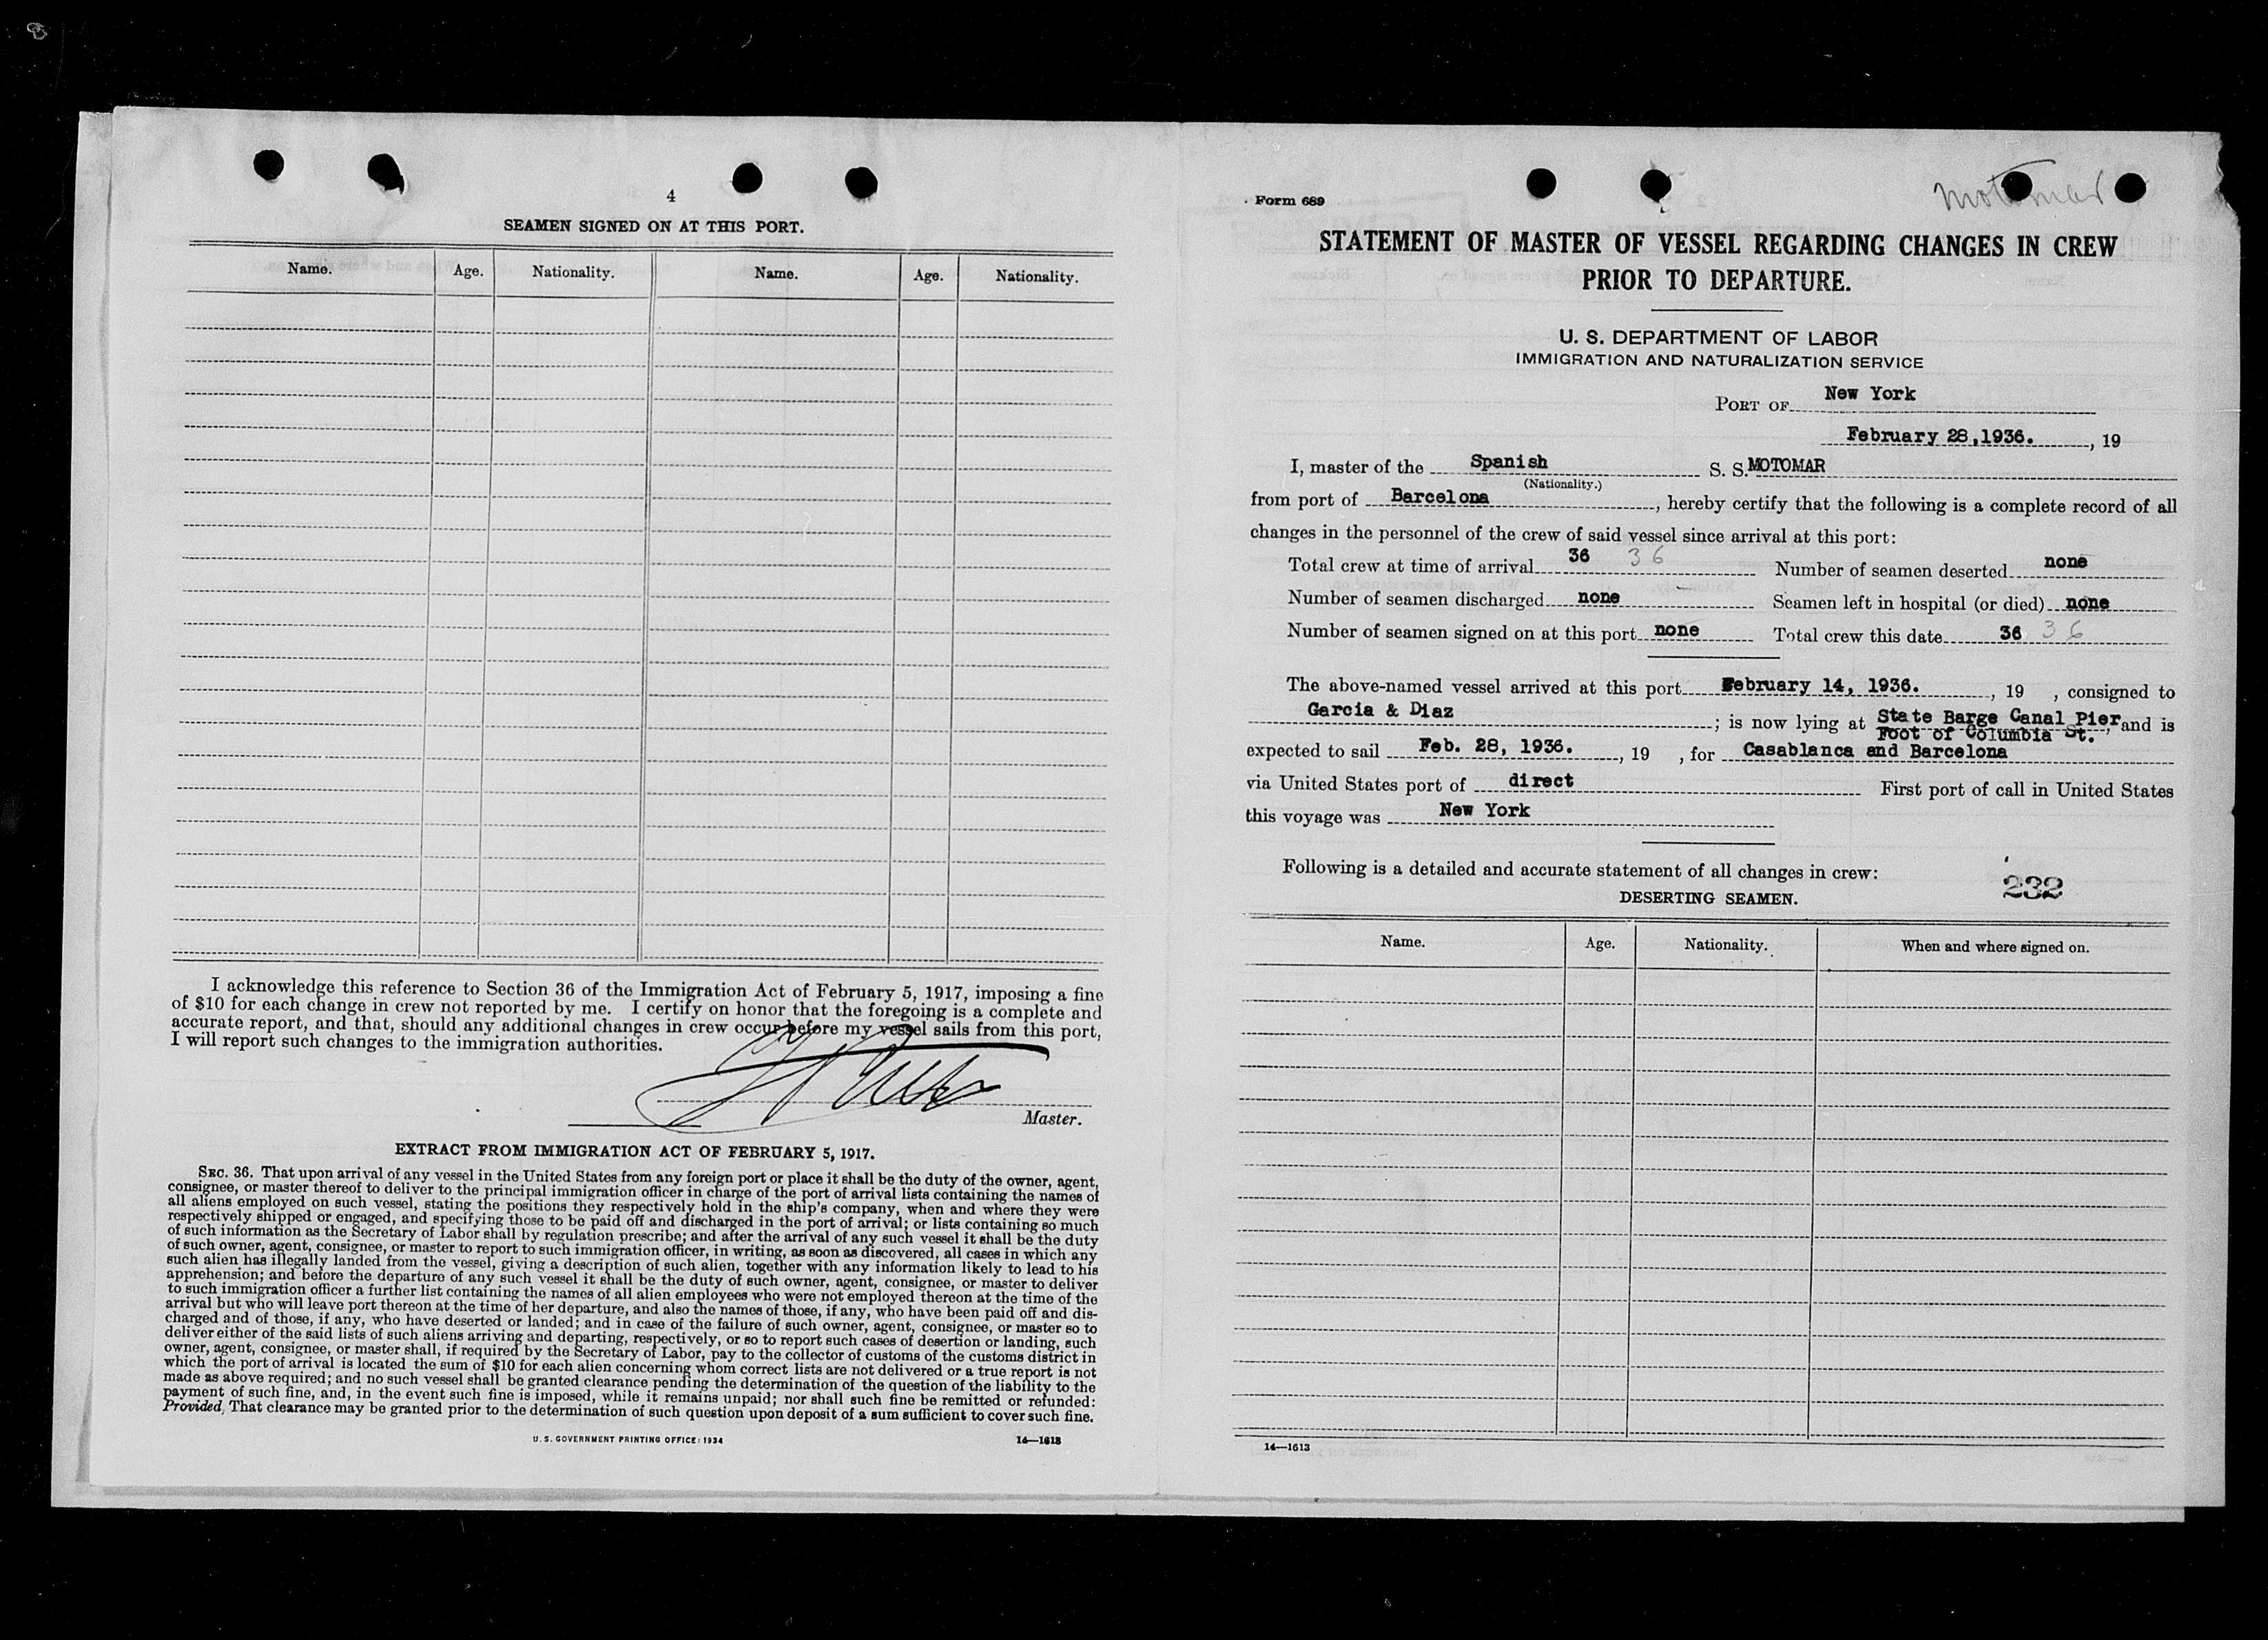 4
SEAMEN SIGNED ON AT THIS PORT.
Name. Age. Nationality. Name. Age. Nationality.
I acknowledge this reference to Section 36 of the Immigration Act of February 5, 1917, imposing a fine
of $10 for each change in crew not reported by me. I certify on honor that the foregoing is a complete and
accurate report, and that, should any additional changes in crew occur before my vessel sails from this port,
I will report such changes to the immigration authorities.
Master.
EXTRACT FROM IMMIGRATION ACT OF FEBRUARY 5, 1917.
SEC. 36. That upon arrival of any vessel in the United States from any foreign port or place it shall be the duty of the owner, agent,
consignee, or master thereof to deliver to the principal immigration officer in charge of the port of arrival lists containing the names of
all aliens employed on such vessel, stating the positions they respectively hold in the ship's company, when and where they were
respectively shipped or engaged, and specifying those to be paid off and discharged in the port of arrival; or lists containing so much
of such information as the Secretary of Labor shall by regulation prescribe; and after the arrival of any such vessel it shall be the duty
of such owner, agent, consignee, or master to report to such immigration officer, in writing, as soon as discovered, all cases in which any
such alien has illegally landed from the vessel, giving a description of such alien, together with any information likely to lead to his
apprehension; and before the departure of any such vessel it shall be the duty of such owner, agent, consignee, or master to deliver
to such immigration officer a further list containing the names of all alien employees who were not employed thereon at the time of the
arrival but who will leave port thereon at the time of her departure, and also the names of those, if any, who have been paid off and dis-
charged and of those, if any, who have deserted or landed; and in case of the failure of such owner, agent, consignee, or master so to
deliver either of the said lists of such aliens arriving and departing, respectively, or so to report such cases of desertion or landing, such
owner, agent, consignee, or master shall, if required by the Secretary of Labor, pay to the collector of customs of the customs district in
which the port of arrival is located the sum of $10 for each alien concerning whom correct lists are not delivered or a true report is not
made as above required; and no such vessel shall be granted clearance pending the determination of the question of the liability to the
payment of such fine, and, in the event such fine is imposed, while it remains unpaid; nor shall such fine be remitted or refunded:
Provided, That clearance may be granted prior to the determination of such question upon deposit of a sum sufficient to cover such fine.
U. S. GOVERNMENT PRINTING OFFICE: 1934 14—1613
Motomar
Form 689
STATEMENT OF MASTER OF VESSEL REGARDING CHANGES IN CREW
PRIOR TO DEPARTURE.
U. S. DEPARTMENT OF LABOR
IMMIGRATION AND NATURALIZATION SERVICE
PORT OF New York
February 28,1936. , 19
I, master of the Spanish S. S. MOTOMAR
(Nationality.)
from port of Barcelona , hereby certify that the following is a complete record of all
changes in the personnel of the crew of said vessel since arrival at this port:
Total crew at time of arrival 36 36 Number of seamen deserted none
Number of seamen discharged none Seamen left in hospital (or died) none
Number of seamen signed on at this port none Total crew this date 36 36
The above-named vessel arrived at this port February 14, 1936. , 19 , consigned to
Garcia & Diaz ; is now lying at State Barge Canal Pier and is
Foot of Columbia St. ,
expected to sail Feb. 28, 1936. , 19 , for Casablanca and Barcelona
via United States port of direct First port of call in United States
this voyage was New York
Following is a detailed and accurate statement of all changes in crew:
232
DESERTING SEAMEN.
Name. Age. Nationality. When and where signed on.
14—1613